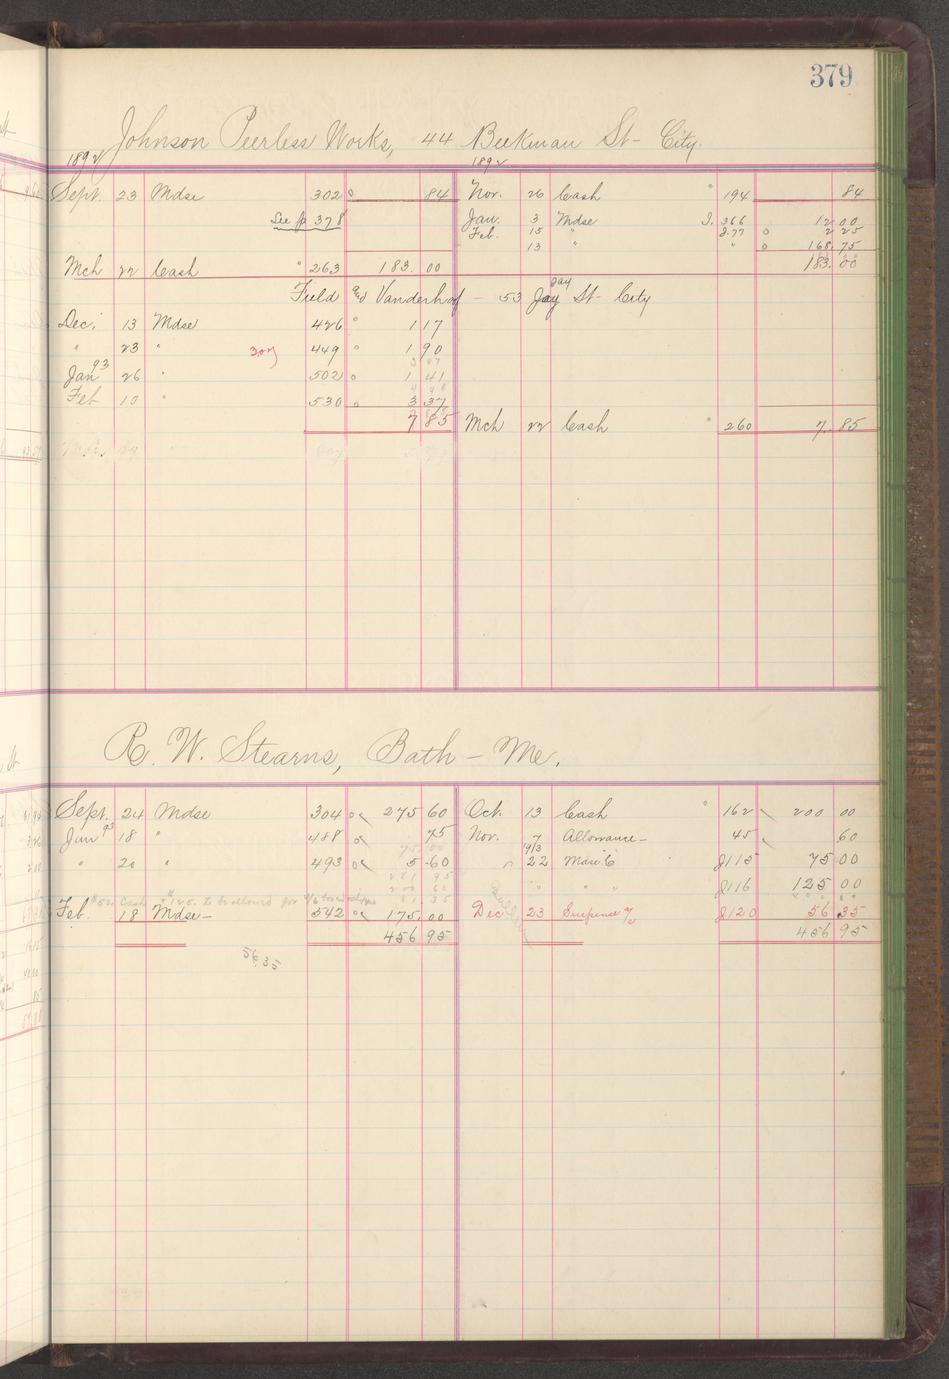 379
Johnson Peerless Works, 44 Beekman St- City.
1892 1892
Sept. 23 Mdse 302 84 Nov. 26 Cash 194 84
See p 378 Jan. 3 Mdse J. 366 12 00
Feb. 15 " J.77 2 25
13 " " 168.75
Mch 22 Cash 263 183.00 183.00
Field and Vanderhof - 53 Jay St- City
Jay
Dec. 13 Mdse 426 1 17
" 23 " 3.07 449 1 90
3 07
Jan 93 26 " 502 1 41
4 48
Feb 10 " 530 3 37
7 85 Mch 22 Cash 260 7.85
R. W. Stearns, Bath - Me.
Sept. 24 Mdse 304 275 60 Oct. 13 Cash 162 200 00
Jan 93 18 " 488 75 Nov. 7 Allowance- 45 60
75 00
" 20 " 493 5.60 " 22 Mdse C J115 75 00
281 95
200 60 " " " J116 125 00
81 35
Feb. 18 Mdse- 542 175.00 Dec 23 Suspense J120 56 35
456 95 456 95
56.35